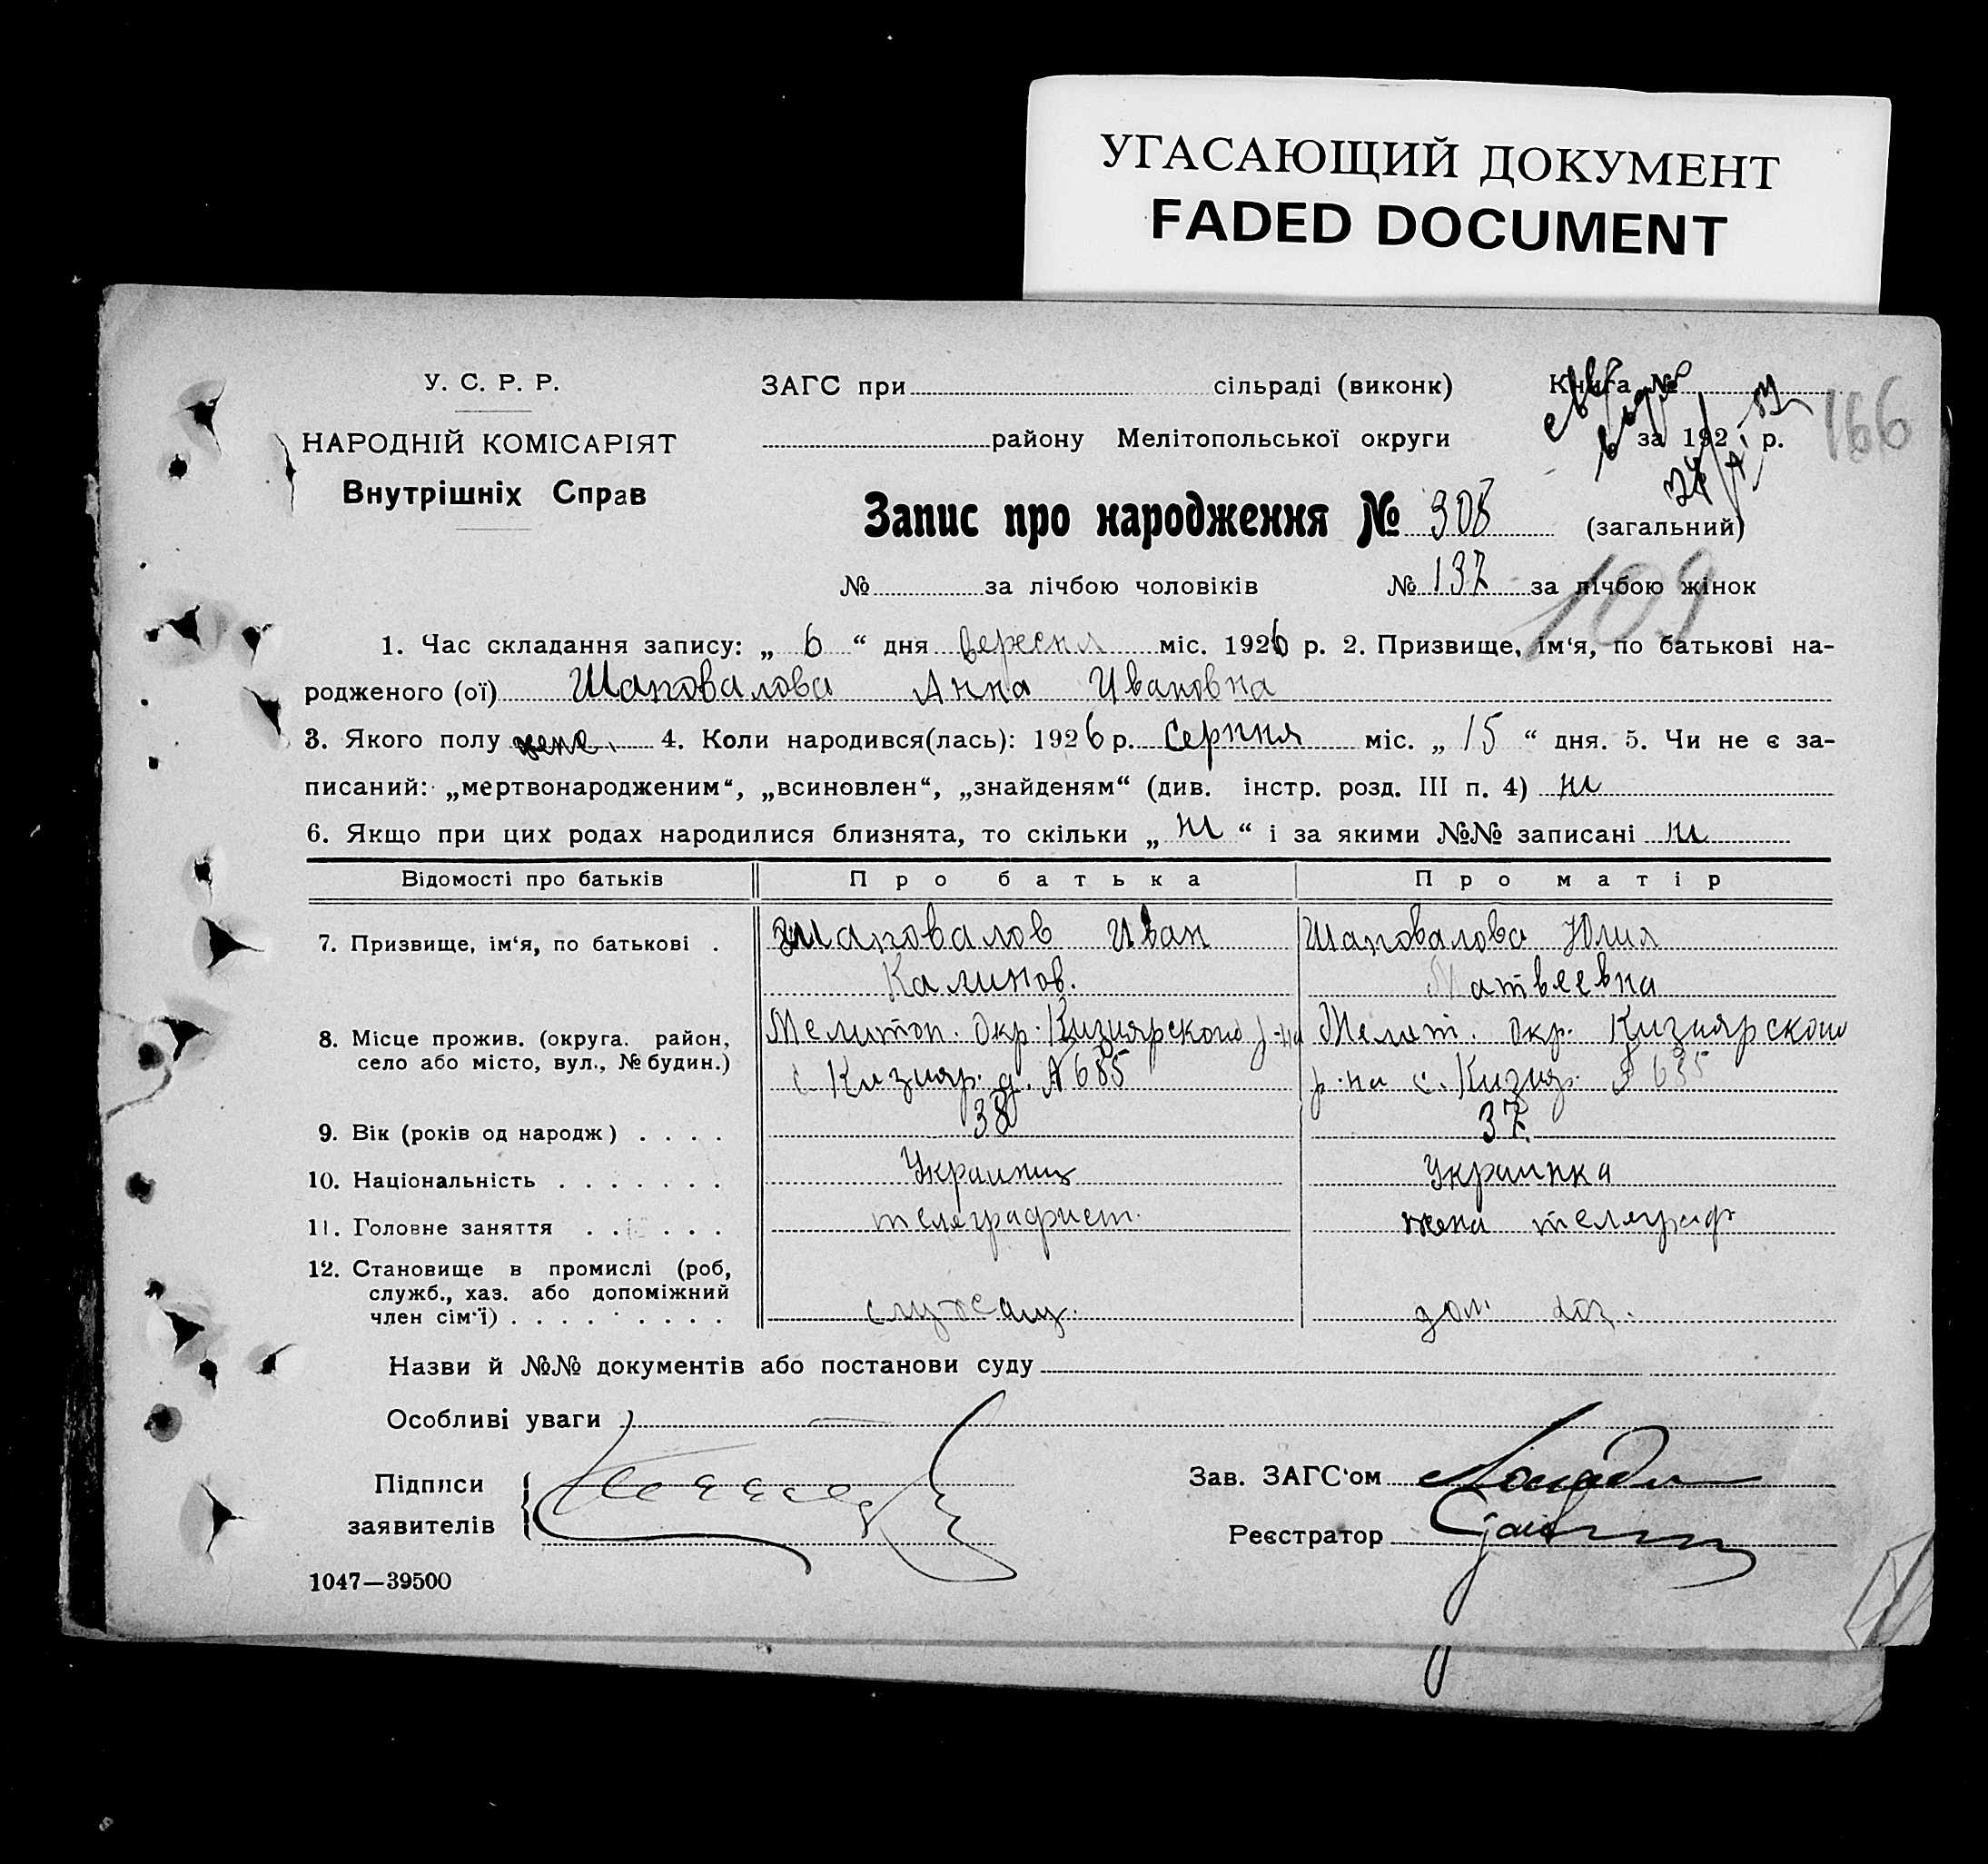 УГАСАЮЩИЙ ДОКУМЕНТ
FADED DOCUMENT
У. С. Р. Р.
НАРОДНІЙ КОМІСАРІЯТ
Внутрішніх Справ
ЗАГС при сільраді (виконк)
району Мелітопольської округи
Книга №
за 192 р.
166
Запис про народження № 308 (загальний)
№ за лічбою чоловіків № 137 за лічбою жінок
109
1. Час складання запису: „ 6 “ дня вересня міс. 1926 р. 2. Призвище, ім‘я, по батькові на-
родженого (ої) Шаповалова Анна Ивановна
3. Якого полу жено. 4. Коли народився(лась): 1926 р. Серпня міс. „ 15 “ дня. 5. Чи не є за-
писаний: „мертвонародженим“, „всиновлен“, „знайденям“ (див. інстр. розд. III п. 4) ни
6. Якщо при цих родах народилися близнята, то скільки „ ни “ і за якими №№ записані ни
Відомості про батьків Про батька Про матір
7. Призвище, ім‘я, по батькові . Шаповалов Иван Шаповалова Юлия
Калинов. Матвеевна
8. Місце прожив. (округа. район, Мелитоп. Окр. Кизиярского р-на Мелит. Окр. Кизиярского
село або місто, вул., № будин.) с Кизияр. д. № 685 р-на с. Кизияр. № 685
9. Вік (років од народж) . . . . 38 37
10. Національність . . . . . . . Украинец Украинка
11. Головне заняття . . . . . . телеграфист. жена телеграф
12. Становище в промислі (роб,
служб., хаз. або допоміжний
член сім‘ї) . . . . . . . . . служащ. дом. хоз.
Назви й №№ документів або постанови суду
Особливі уваги
Підписи
заявителів
Зав. ЗАГС‘ом
Реєстратор
1047—39500